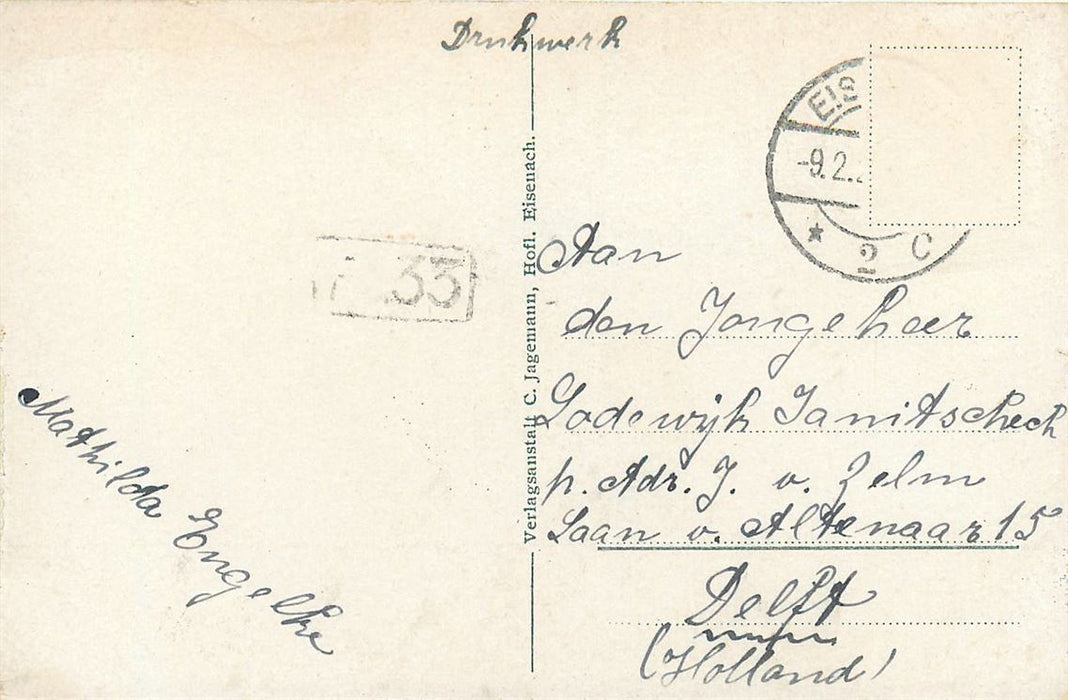 Drukwerk
EIS
-9.2.
* 2 C
33
Verlagsanstalt C. Jagemann, Hofl. Eisenach.
Aan
den Jongeheer
Lodewijk Janitscheck
p. Adr. J. v. Zelm
Laan v. Altenaar 15
Delft
(Holland)
Mathilda Engelke